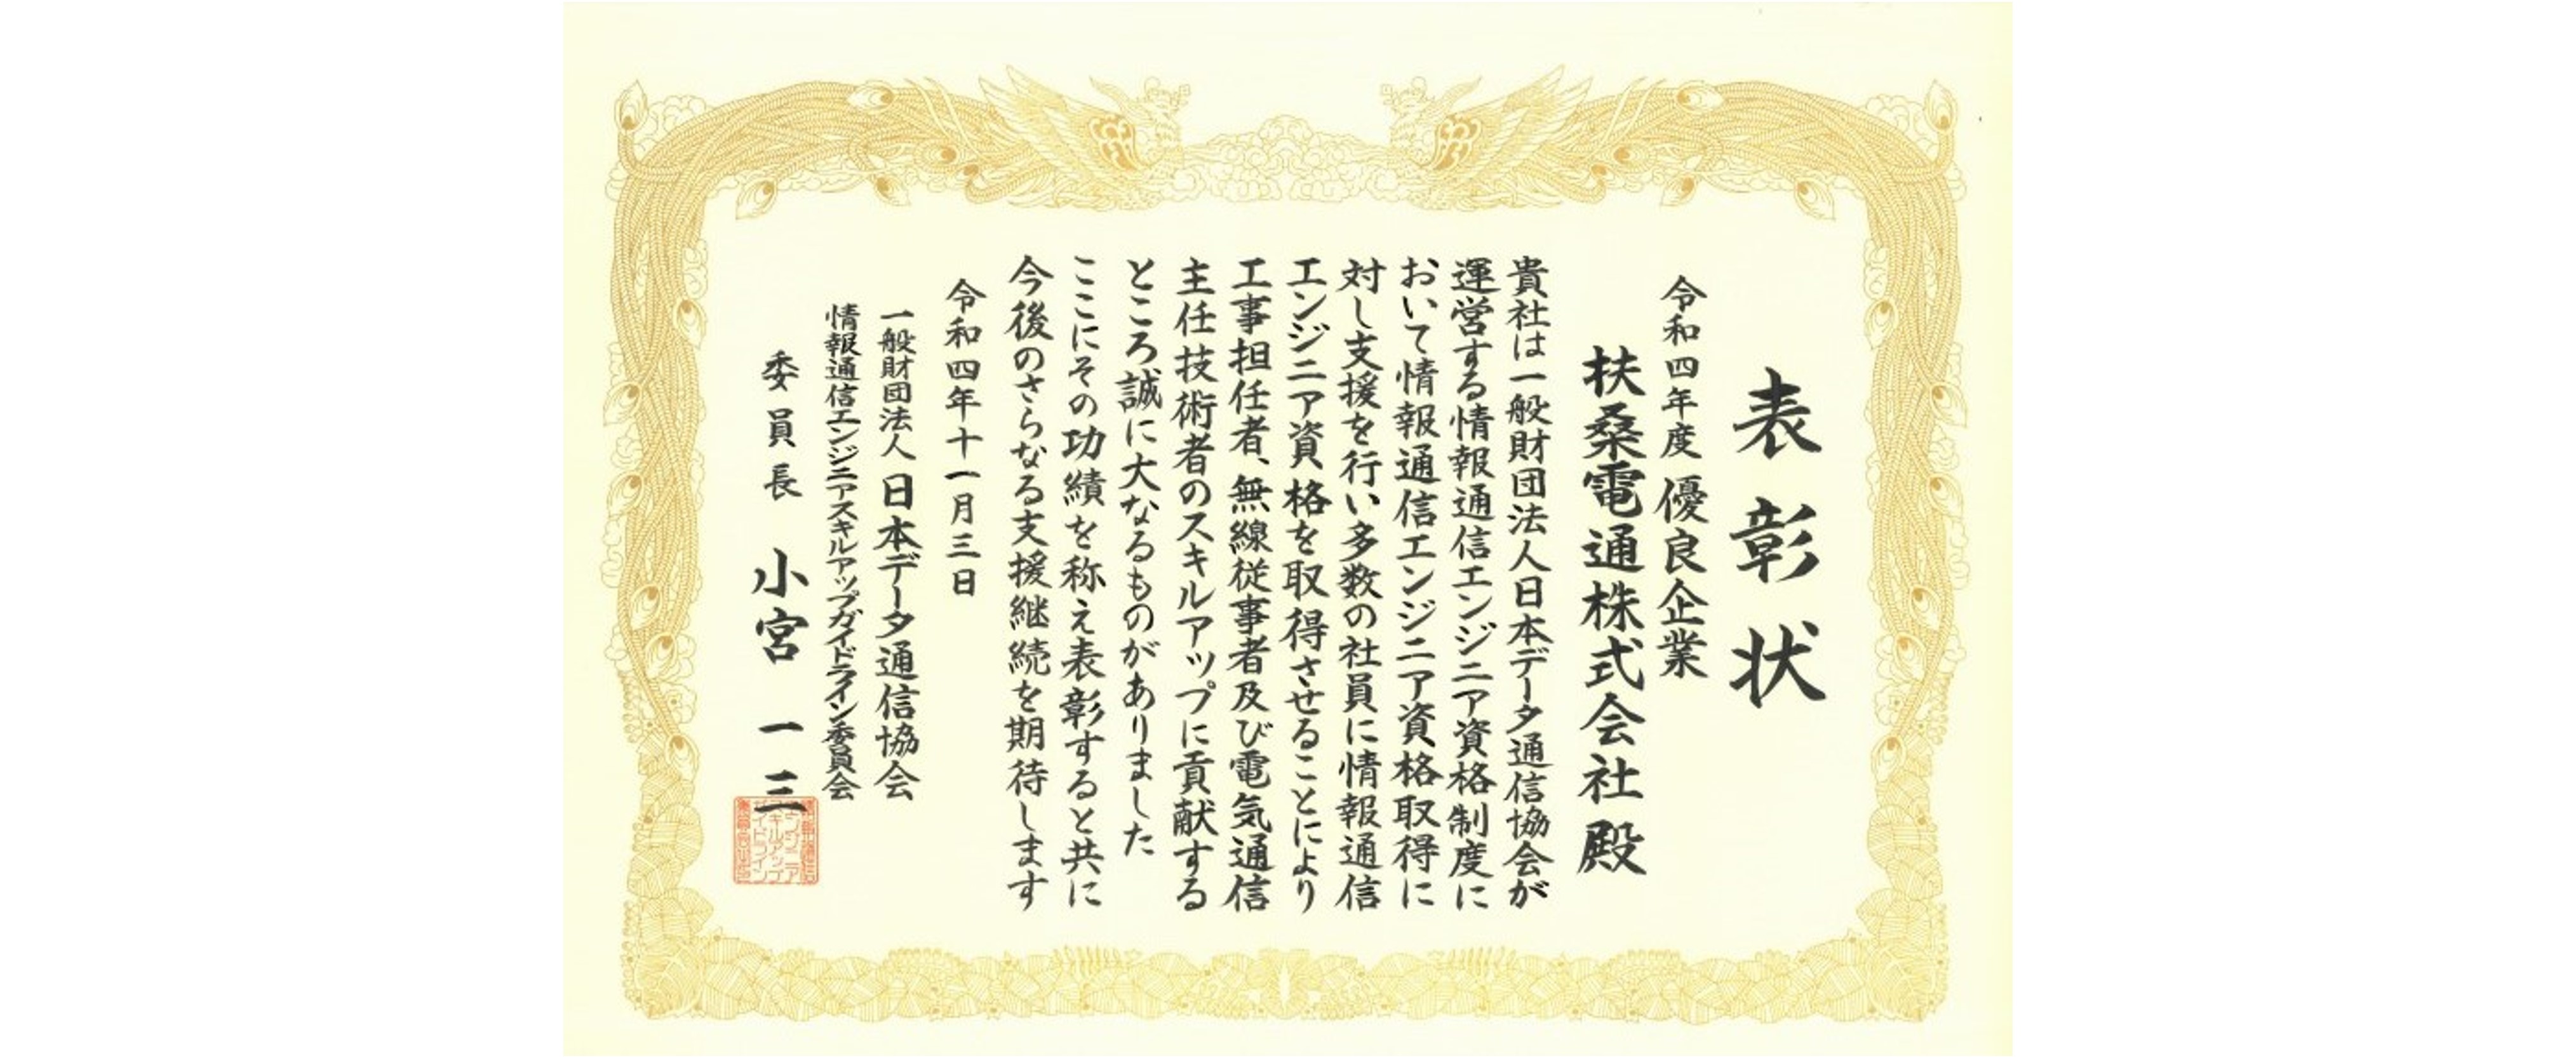 表彰状
令和四年度 優良企業
扶桑電通株式会社 殿
貴社は一般財団法人日本データ通信協会が
運営する情報通信エンジニア資格制度に
おいて情報通信エンジニア資格取得に
対し支援を行い多数の社員に情報通信
エンジニア資格を取得させることにより
工事担任者、無線従事者及び電気通信
主任技術者のスキルアップに貢献する
ところ誠に大なるものがありました
ここにその功績を称え表彰すると共に
今後のさらなる支援継続を期待します
令和四年十一月三日
一般財団法人 日本データ通信協会
情報通信エンジニアスキルアップガイドライン委員会
委員長 小宮 一三